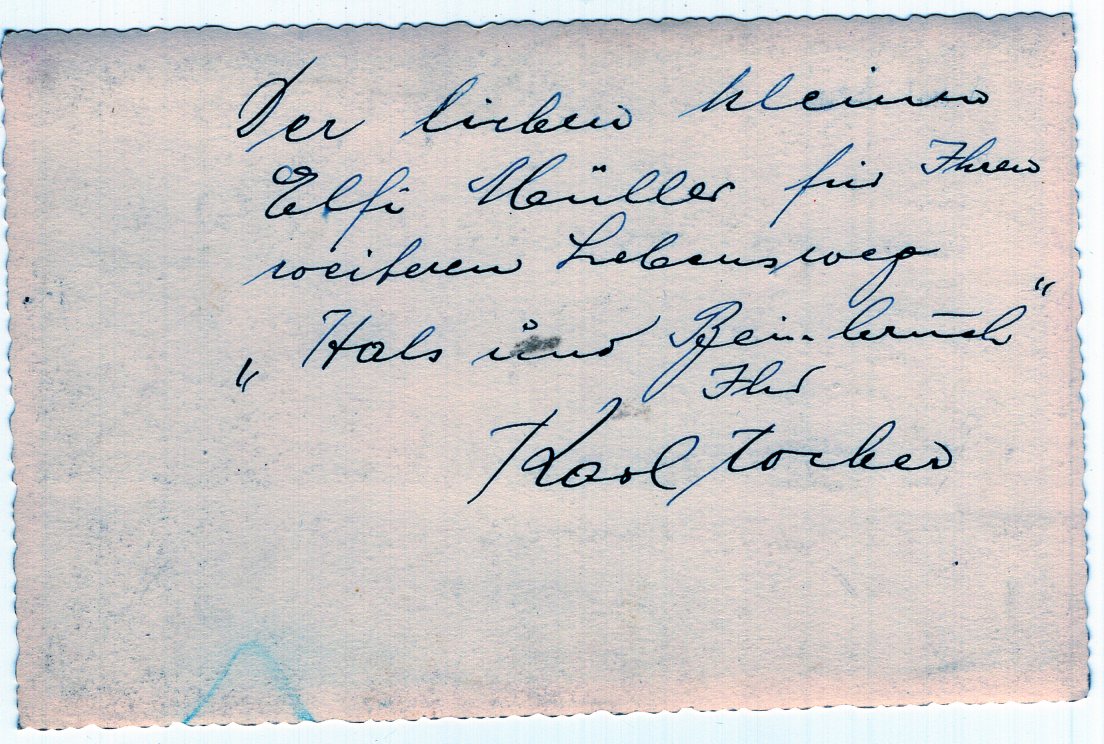 Der lieben kleinen
Elfi Müller für Ihren
weiteren Lebensweg
„Hals und Beinbruch"
Ihr
Karl